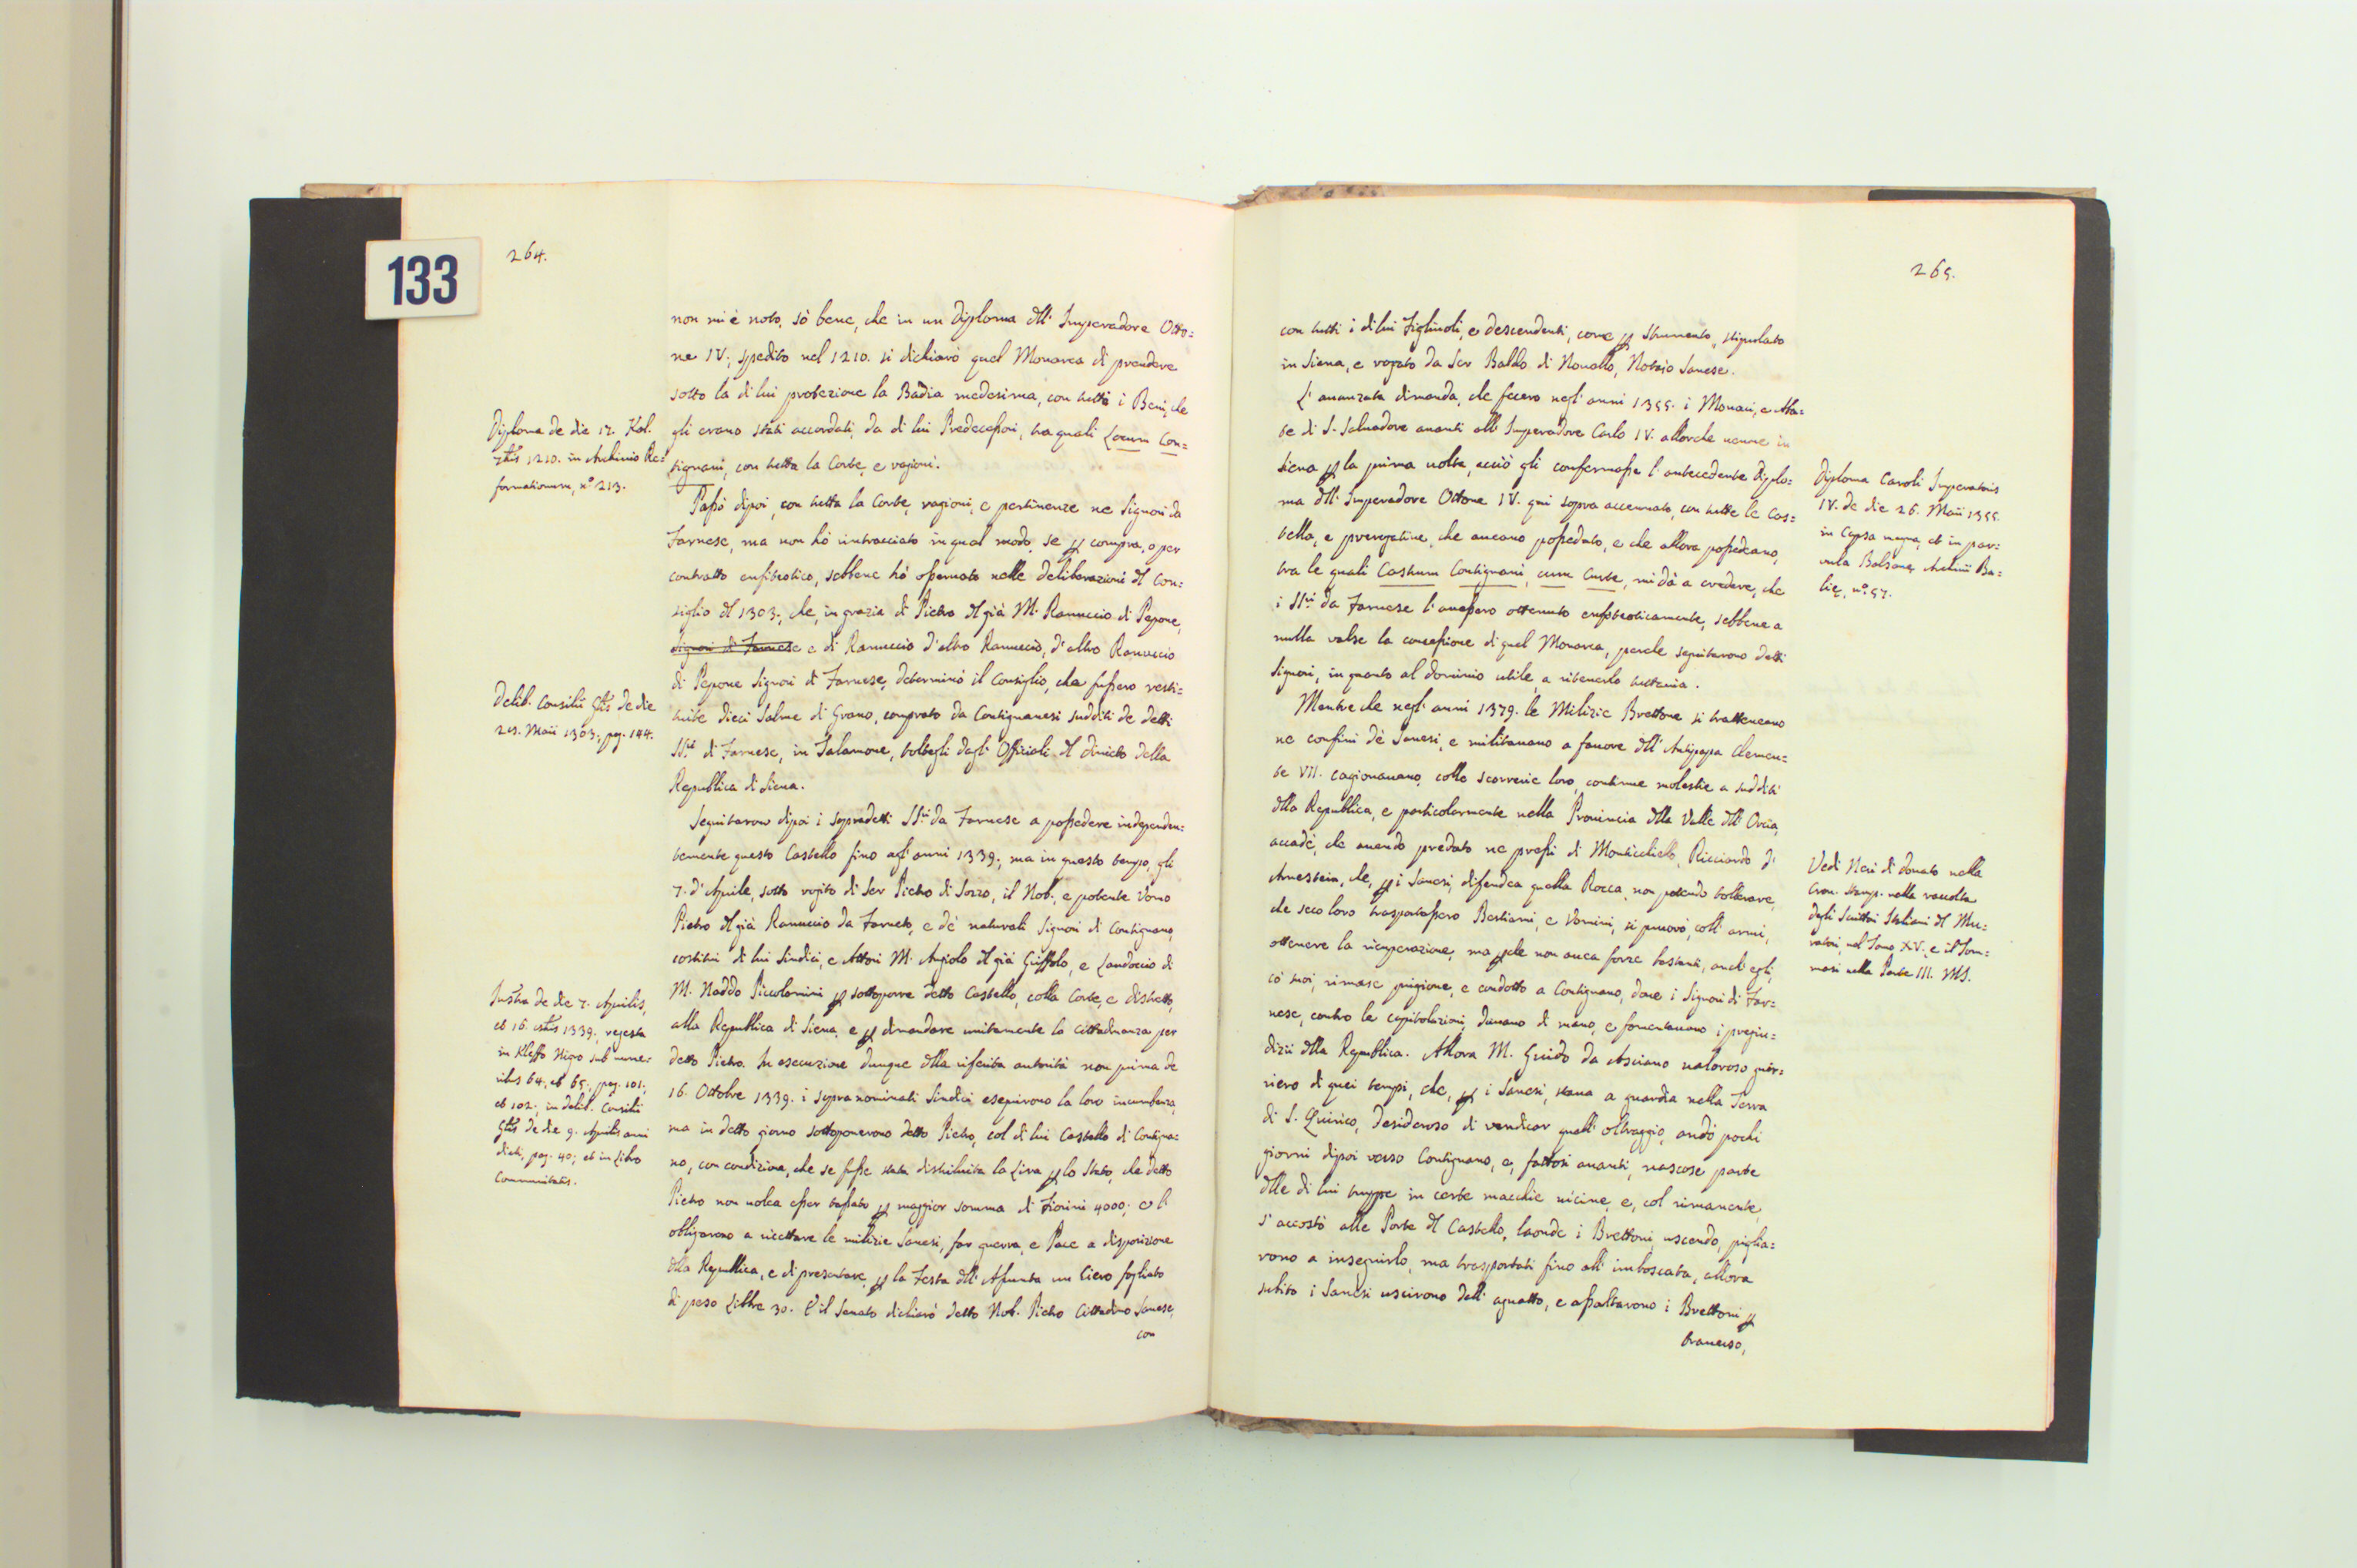 133
264.
non mi è noto, sò bene, che in un Diploma dell' Imperadore Otto=
ne IV., spedito nel 1210. si dichiarò quel Monarca di prendere
sotto la di lui protezione la Badia medesima, con tutti i Beni, che
gli erano stati accordati, da di lui Predecessori, tra quali Locum Con=
tignani, con tutta la Corte, e ragioni.
Passò dipoi, con tutta la Corte, ragioni, e pertinenze ne Signori da
Farnese, ma non hò rintracciato in qual modo, se p compra, o per
contratto enfiteotico, sebbene hò osservato nelle deliberazioni del Con=
siglio del 1303., che, in grazia di Pietro del già M. Ranuccio di Pepone,
Signori di Farnese e di Ranuccio d'altro Ranuccio, d'altro Ranuccio
di Pepone Signori di Farnese, determinò il Consiglio, che fussero resti=
tuite dieci Salme di Grano, comprato da Contignanesi sudditi de detti
SSri di Farnese, in Talamone, toltegli dagli Offiziali del divieto della
Republica di Siena.
Seguitarono dipoi i sopradetti SSri da Farnese a possedere independen=
temente questo Castello fino agl' anni 1339., ma in questo tempo, gli
7. d'Aprile, sotto rogito di Ser Pietro di Sozzo, il Nob., e potente Vomo
Pietro del già Ranuccio da Farneto, e dè naturali Signori di Contignano,
costituì di lui Sindici, e Attori M. Angiolo del già Griffolo, e Landoccio di
M. Naddo Piccolomini p sottoporre detto Castello, colla Corte, e distretto,
alla Republica di Siena, e p dimandare unitamente la Cittadinanza per
detto Pietro. In esecuzione dunque della riferita autorità non prima de
16. Ottobre 1339. i sopranominati Sindici eseguirono la loro incumbenza,
ma in detto giorno sottoponerono detto Pietro, col di lui Castello di Contigna=
no, con condizione, che se fusse stata distribuita la Lira p lo Stato, che detto
Pietro non volea esser tassato p maggior somma di Fiorini 4000; e l'
obligarono a ricettare le milizie Sanesi, far guerra, e Pace a disposizione
della Republica, e di presentare, p la Festa dell' Assunta un Ciero fogliato
di peso Libbre 30. E il Senato dichiarò detto Nob. Pietro Cittadino Sanese,
con
Diploma de die 12. Kal.
1210. in Archivio Re=
formationum, n.º 213.
Delib. Consilii Glis de die
Maii 1303., pag. 144.
de die 7. Aprilis,
et 16. 1339., regesta
in Kleffo Nigro sub nume=
ribus 64., et 65., pag. 101.,
et 102., in delib. Consilii
Glis de die 9. Aprilis anni
dicti, pag. 40; et in Libro
Communitatis.
265.
con tutti i di lui Figliuoli, e descendenti, come p Strumento, stipulato
in Siena, e rogato da Ser Baldo di Nouello, Notaio Sanese.
L' auanzata dimanda, che fecero negl' anni 1355. i Monaci, e Aba=
te di S. Saluadore auanti all' Imperadore Carlo IV. allorche uenne in
Siena p la prima uolta, acciò gli confermasse l' antecedente Diplo=
ma dell' Imperadore Ottone IV. qui sopra accennato, con tutte le Cas=
tella, e prerogatiue, che aueano possedute, e che allora possedeano,
tra le quali Castrum Contignani, cum Curte, mi dà a credere, che
i SSri da Farnese l' auessero ottenuto enfiteoticamente, sebbene a
nulla valse la concessione di quel Monarca, perche seguitarono detti
Signori, in quanto al dominio utile, a ritenerlo tuttauia.
Mentre che negl' anni 1379. le Milizie Brettone si tratteneano
ne confini dè Sanesi, e militauano a fauore dell' Antipapa Clemen=
te VII. cagionauano, colle scorrerie loro, continue molestie a sudditi
della Republica, e particolarmente nella Prouincia della Valle dell' Orcia,
accadè, che auendo predato ne pressi di Monticchiello, Ricciardo d'
Arnestein, che, p i Sanesi, difendea quella Rocca, non potendo tollerare,
che seco loro trasportassero Bestiami, e Vomini, si prouò, coll' armi,
ottenere la ricuperazione, ma pche non auea forze bastanti, anch' egli,
cò suoi, rimase prigione, e condotto a Contignano, doue i Signori di Far=
nese, contro le capitolazioni, dauano di mano, e fomentauano i pregiu=
dizii della Republica. Allora M. Guido da Asciano ualoroso guer=
riero di quei tempi, che, p i Sanesi, staua a guardia nella Terra
di S. Quirico, desideroso di vendicar quell' oltraggio, andò pochi
giorni dipoi verso Contignano, e, fattosi auanti, nascose parte
delle di lui truppe in certe macchie uicine, e, col rimanente,
s' accostò alle Porte del Castello, laonde i Brettoni, uscendo, piglia=
rono a inseguirlo, ma trasportati fino all' imboscata, allora
subito i Sanesi uscirono dell' aguatto, e assaltarono i Brettoni p
trauerso,
Diploma Caroli Imperatoris
IV. de die 26. Maii 1355.
in Capsa magna, et in par=
uula Balzane, Archiuii Ba=
lie, n.º 57.
Vedi Neri di Donato nella
Cron. stamp. nella raccolta
degli Scrittori Italiani del Mu=
ratori, nel Tomo XV., e il Tom=
masi nella Parte III. MS.